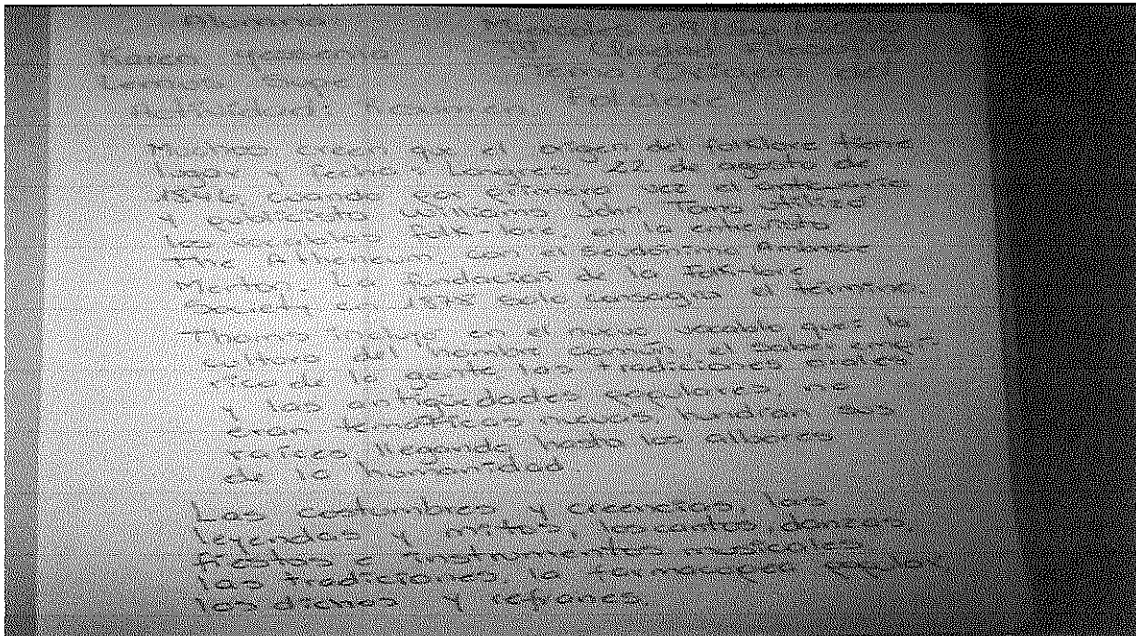 Karen
Lemus
Actividad: Resumen Folclore
Muchos creen que el origen del folklore tiene
lugar y fecha: Londres 22 de agosto de
1846, cuando por primera vez el anticuario
y publicista Williams John Toms utilizó
los vocablos folk-lore en la
The Atheneum, con el seudónimo Ambrose
Merton. La fundación de la folk-lore
Society en 1878 solo consagra el término.
Thoms incluyó en el nuevo vocablo que: la
cultura del hombre común, el saber empí-
rico de la gente las tradiciones orales
y las antigüedades populares, no
eran temáticas nuevas, hundían sus
raíces llegando hasta los albores
de la humanidad.
Las costumbres y creencias, las
leyendas y mitos, los cantos, danzas
fiestas e instrumentos musicales
las tradiciones, la farmacopea popular
los dichos y refranes.